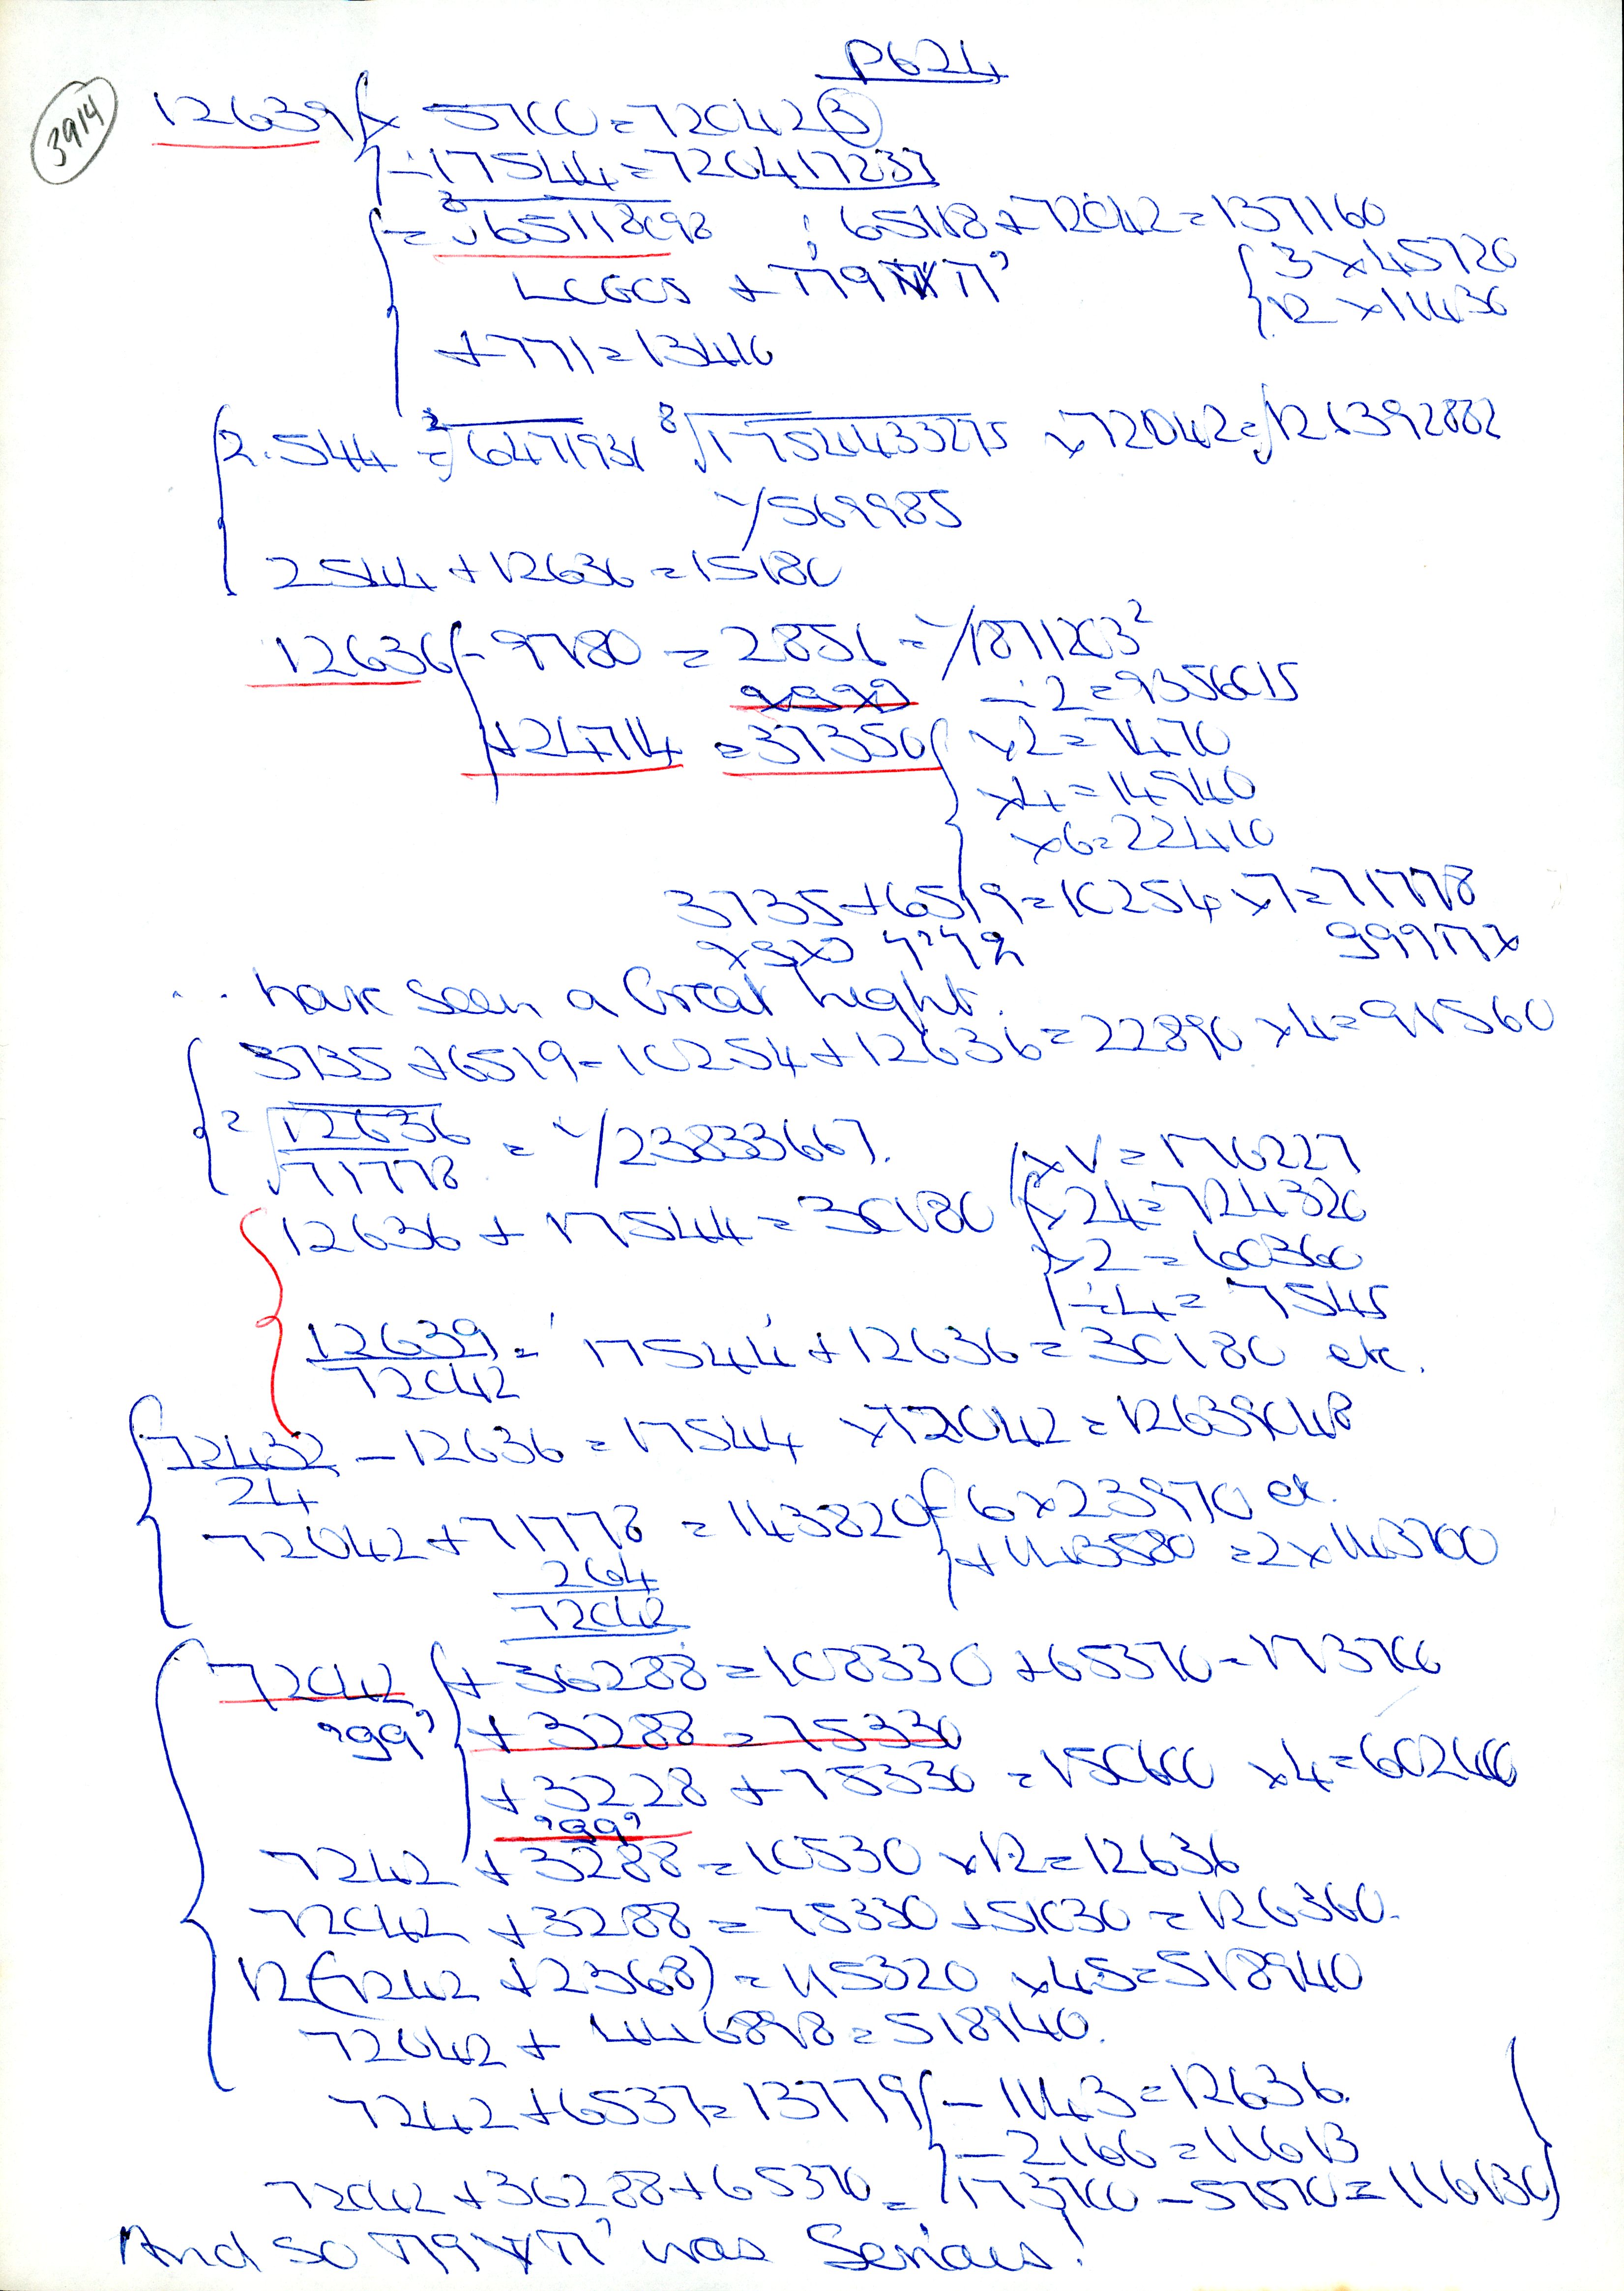 P624
3914
12639 { x 5700 = 72042(3)
÷ 17544 = 720417237
= ³√65118098 ; 65118 + 72042 = 137160
LOGOS + 3 x 45720
12 x 11430
+ 771 = 13410
2.544 = ³√6471931 ⁸√1754433275 x 72042 = √126392882
√569985
2544 + 12636 = 15180
12636 { - 9780 = 2856 = √1871203²
÷ 2 = 9356015
+ 24714 = 37350 { x 2 = 7470
x 4 = 14940
x 6 = 22410
3735 + 6519 = 10254 x 7 = 71778
... have seen a Great Light.
3735 + 6519 = 10254 + 12636 = 22890 x 4 = 91560
²√12636/71778 = √23833667.
12636 + 17544 = 30180 { x 24 = 724320
x 2 = 60360
÷ 4 = 7545
12639/72042 = '17544' + 12636 = 30180 etc.
72432/24 - 12636 = 17544 x 72042 = 12639048
72042 + 71778 = 143820 { = 6 x 23970 etc.
+ 143580 = 2 x 143700
264
72042
72042 { + 36288 = 108330 + 65370 = 173700
'99' + 3288 = 75330
+ 3228 + 75330 = 150600 x 4 = 602400
'99'
7242 + 3288 = 10530 x 12 = 12636
72042 + 3288 = 75330 + 51030 = 126360.
12(7242 + 2368) = 115320 x 45 = 518940
72042 + 446898 = 518940.
7242 + 6537 = 13779 { - 1143 = 12636.
- 2166 = 11613
72042 + 36288 + 65370 = 173700 - 57570 = 116130
And so was Serious!